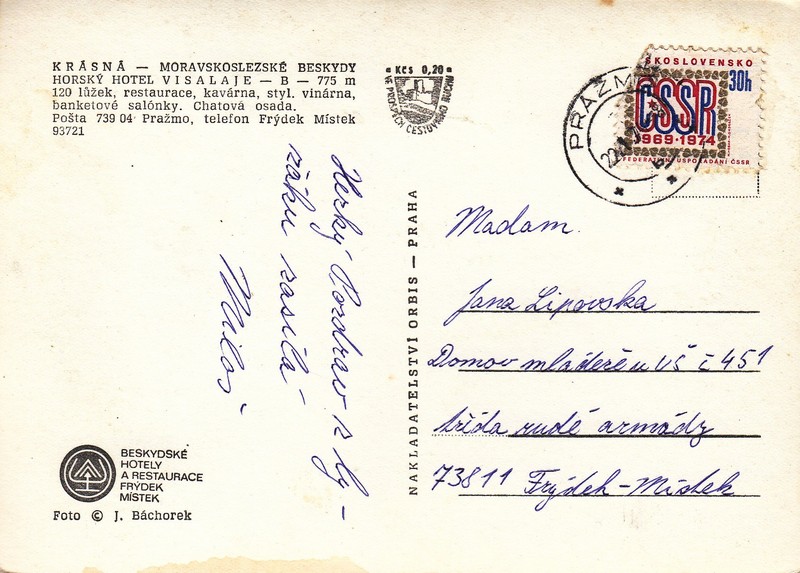 KRÁSNÁ — MORAVSKOSLEZSKÉ BESKYDY
HORSKÝ HOTEL VISALAJE — B — 775 m
120 lůžek, restaurace, kavárna, styl. vinárna,
banketové salónky. Chatová osada.
Pošta 739 04 Pražmo, telefon Frýdek Místek
93721
Kčs 0,20
VE PROSPĚCH CESTOVNÍHO RUCHU
PRAŽMO
ČESKOSLOVENSKO
30h
ČSSR
1969-1974
FEDERATIVNÍ USPOŘÁDÁNÍ ČSSR
Hezký Pozdrav z ly-
záku zasílá
Miloš
NAKLADATELSTVÍ ORBIS — PRAHA
Madam.
Jana Lipovska
Domov mládeže u VŠ č 451
třída rudé armády
73811 Frýdek-Místek
BESKYDSKÉ
HOTELY
A RESTAURACE
FRÝDEK
MÍSTEK
Foto © J. Báchorek